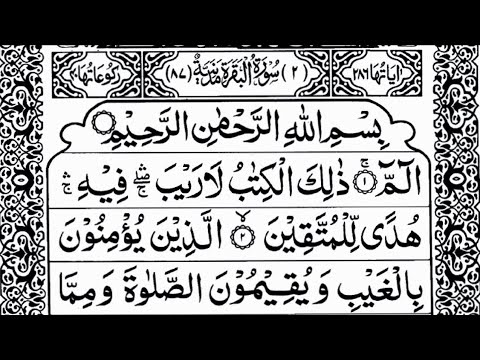 اٰیَاتُهَا ٢٨٦ (٢) سُوْرَةُ الْبَقَرَةِ مَدَنِيَّةٌ (٨٧) رُكُوْعَاتُهَا ٤٠
بِسْمِ اللهِ الرَّحْمٰنِ الرَّحِيْمِ
الٓمّٓ ۚ ١ ذٰلِكَ الْكِتٰبُ لَا رَيْبَ ۛ فِيْهِ ۛ
هُدًى لِّلْمُتَّقِيْنَ ۙ ٢ الَّذِيْنَ يُؤْمِنُوْنَ
بِالْغَيْبِ وَيُقِيْمُوْنَ الصَّلٰوةَ وَمِمَّا